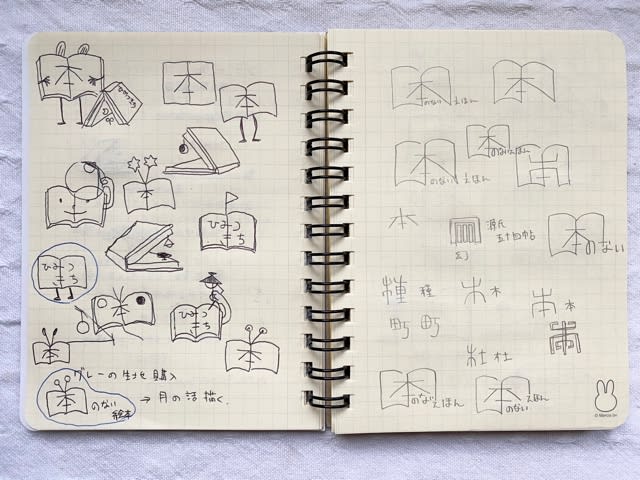 本
ひみつ
きち
本
本
本
ひみつ
きち
ひみつ
きち
本
ひみつ
きち
本
本
グレーの生地を購入
本のない
絵本
→ 月の話描く
本
のないえほん
本
本
のないえほん
本
のないえほん
本
本
源氏
五十四帖
幻
本のない
種 種
木 木
本 本
町 町
杜 杜
本
のなえほん
本
えほん
のない
© Mercis bv